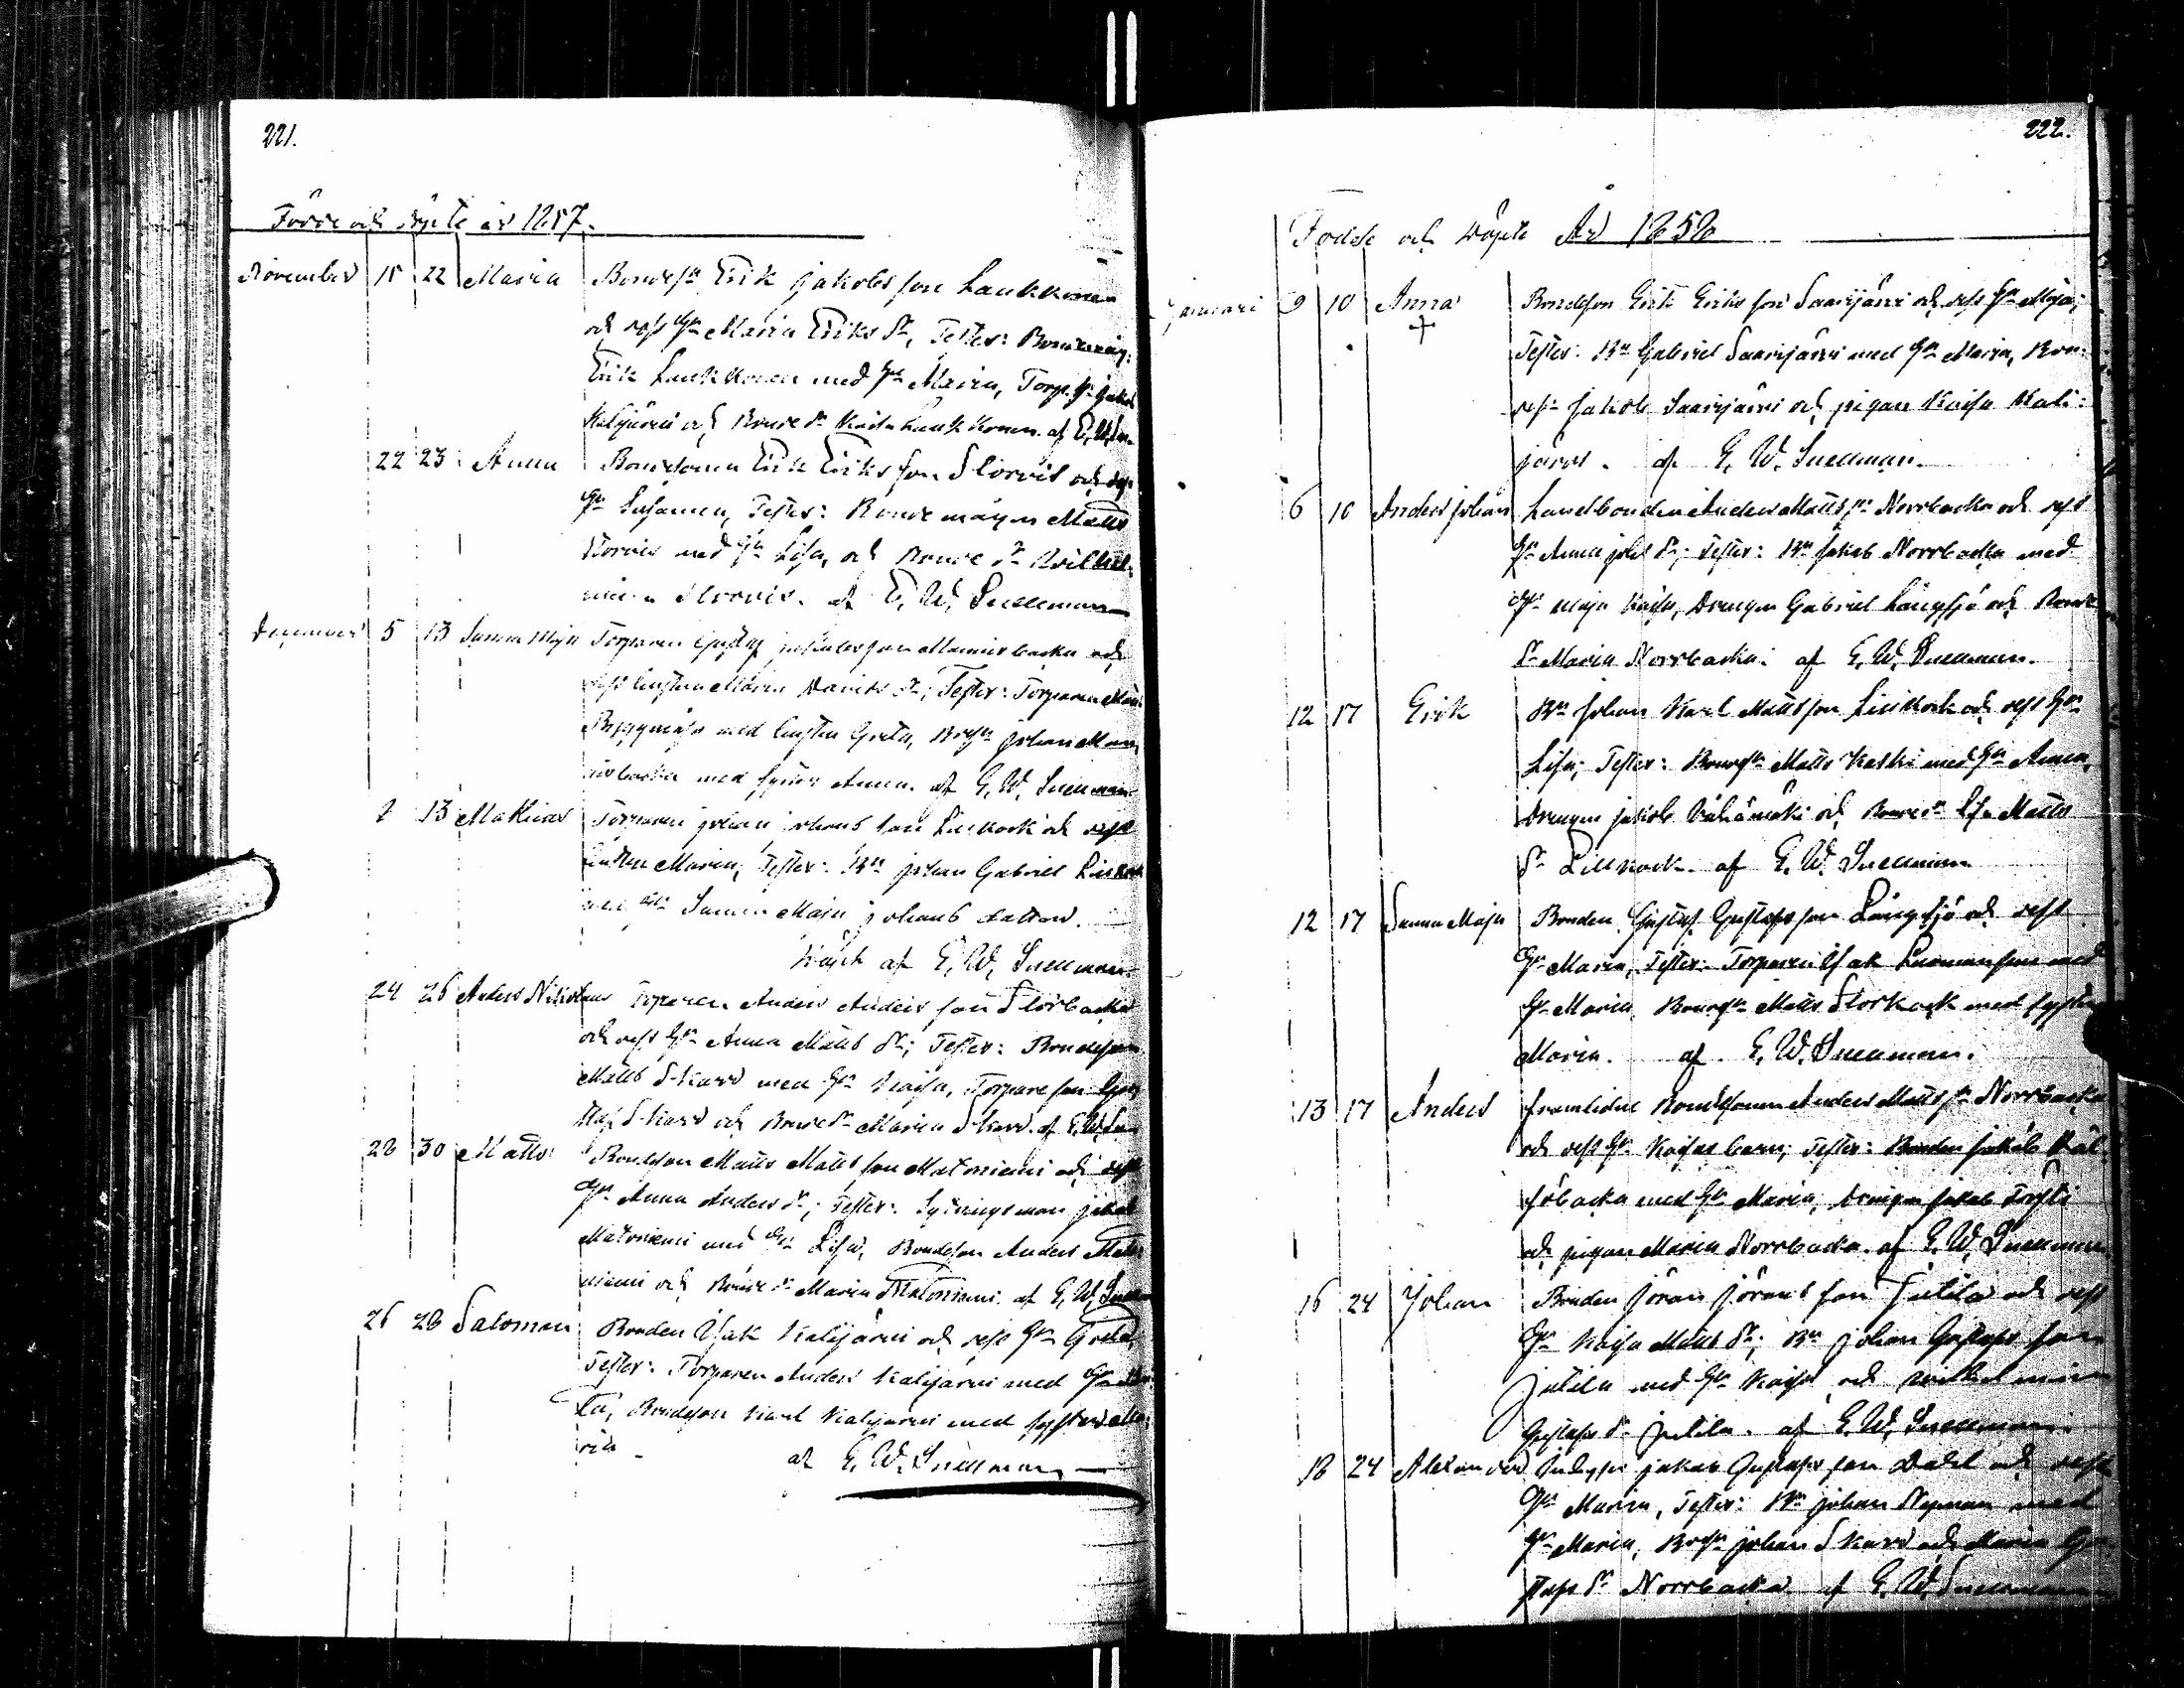 221.
Födde och döpte år 1857.
November 15 22 Maria Bondesn Erik Jakobsson Laukkonen
och dess Hu Maria Eriks Dr, Testes: Bondemåg:
Erik Laukkonen med Hu Maria, Torp. Sn Jakob
Kalijärvi och Bonde Dr Kaisa Laukkonen. af E. W. Sn.
22 23 Anna Bondsonen Erik Eriksson Storvis och dess
Hu Susanna, Testes: Bonde mågen Matts
Storvis med Hu Lisa, och Bonde Dr Wilhel
mina Storvis. af E. W. Snellman
December 5 13 Sanna Maja Torparen Gustaf
dess hustru Maria Davids Dr; Testes: Torparen
med hustru Greta, Bdesn Johan
med syster Anna. af E. W. Snellman
13 Mathias Torparen Johan Johansson Lillkock och dess
hustru Maria, Testes: Bn Johan Gabriel Lillkock
med Hu Sanna Maja Johans dotter.
Döpt af E. W. Snellman
24 26 Anders Nikolaus Torparen Anders Andersson Storbacka
och dess Hu Anna Matts Dr; Testes: Bondeson
Matts Skard med Hu Kaisa, Torpareson Gus
taf Skard och Bonde Dr Maria Skard. af E. W. Sn
28 30 Matts Bondeson Matts Mattsson Matoniemi och dess
Hu Anna Anders Dr; Testes: Sytningsman Jakob
Matoniemi med Hu Lisa, Bondeson Anders Mato
niemi och Bonde Dr Maria Matoniemi. af E. W. Snellman
26 28 Salomon Bonden Isak Kalijärvi och dess Hu Greta,
Testes: Torparen Anders Kalijärvi med Hu
ta, Bondeson Karl Kalijärvi med syster Ma
ria. af E. W. Snellman
222.
Födde och döpte År 1858
Januari 9 10 Anna Bondeson Erik Eriksson Saarijärvi och dess Hu Maja;
Testes: Bn Gabriel Saarijärvi med Hu Maria, Bon
desn Jakob Saarijärvi och pigan Kaisa Kali:
järvi. af E. W. Snellman.
6 10 Anders Johan Landbonden Anders Matts Sn Norrbacka och dess
Hu Anna Johs Dr; Testes: Bn Jakob Norrbacka med
Hu Maja Kaisa, Drengen Gabriel Långsjö och Bonde
Dr Maria Norrbacka. af E. W. Snellman.
12 17 Erik Bn Johan Karl Mattsson Lillkock och dess Hu
Lisa; Testes: Bondesn Matts Kaski med Hu Anna,
Drengen Jakob Vähämäki och Bonde Dr Lisa Matts
Dr Lillkock. af E. W. Snellman
12 17 Sanna Maja Bonden Gustaf Gustafsson Långsjö och dess
Hu Maria, Testes: Torparen Isak med
Hu Maria, Bondesn Matts Storkock med syster
Maria. af E. W. Snellman.
13 17 Anders framlidne Bondsonen Anders Matts Sn Norrbacka
och dess Hu Kaisas barn; Testes: Bonden Jakob
med Hu Maria, Drengen Jakob
och pigan Maria Norrbacka. af E. W. Snellman
16 24 Johan Bonden Jöran Jöransson Jutila och dess
Hu Kaisa Matts Dr; Bn Johan Gustafsson
Jutila med Hu Kaisa och Wilhelmina
Gustafs Dr Jutila. af E. W. Snellman.
18 24 Alexander Jakob Gustafsson Dahl och dess
Hu Maria, Testes: Bn Johan Nyman med
Hu Maria, Bdesn Johan Skard och Maria Gu
stafs Dr Norrbacka af E. W. Snellman